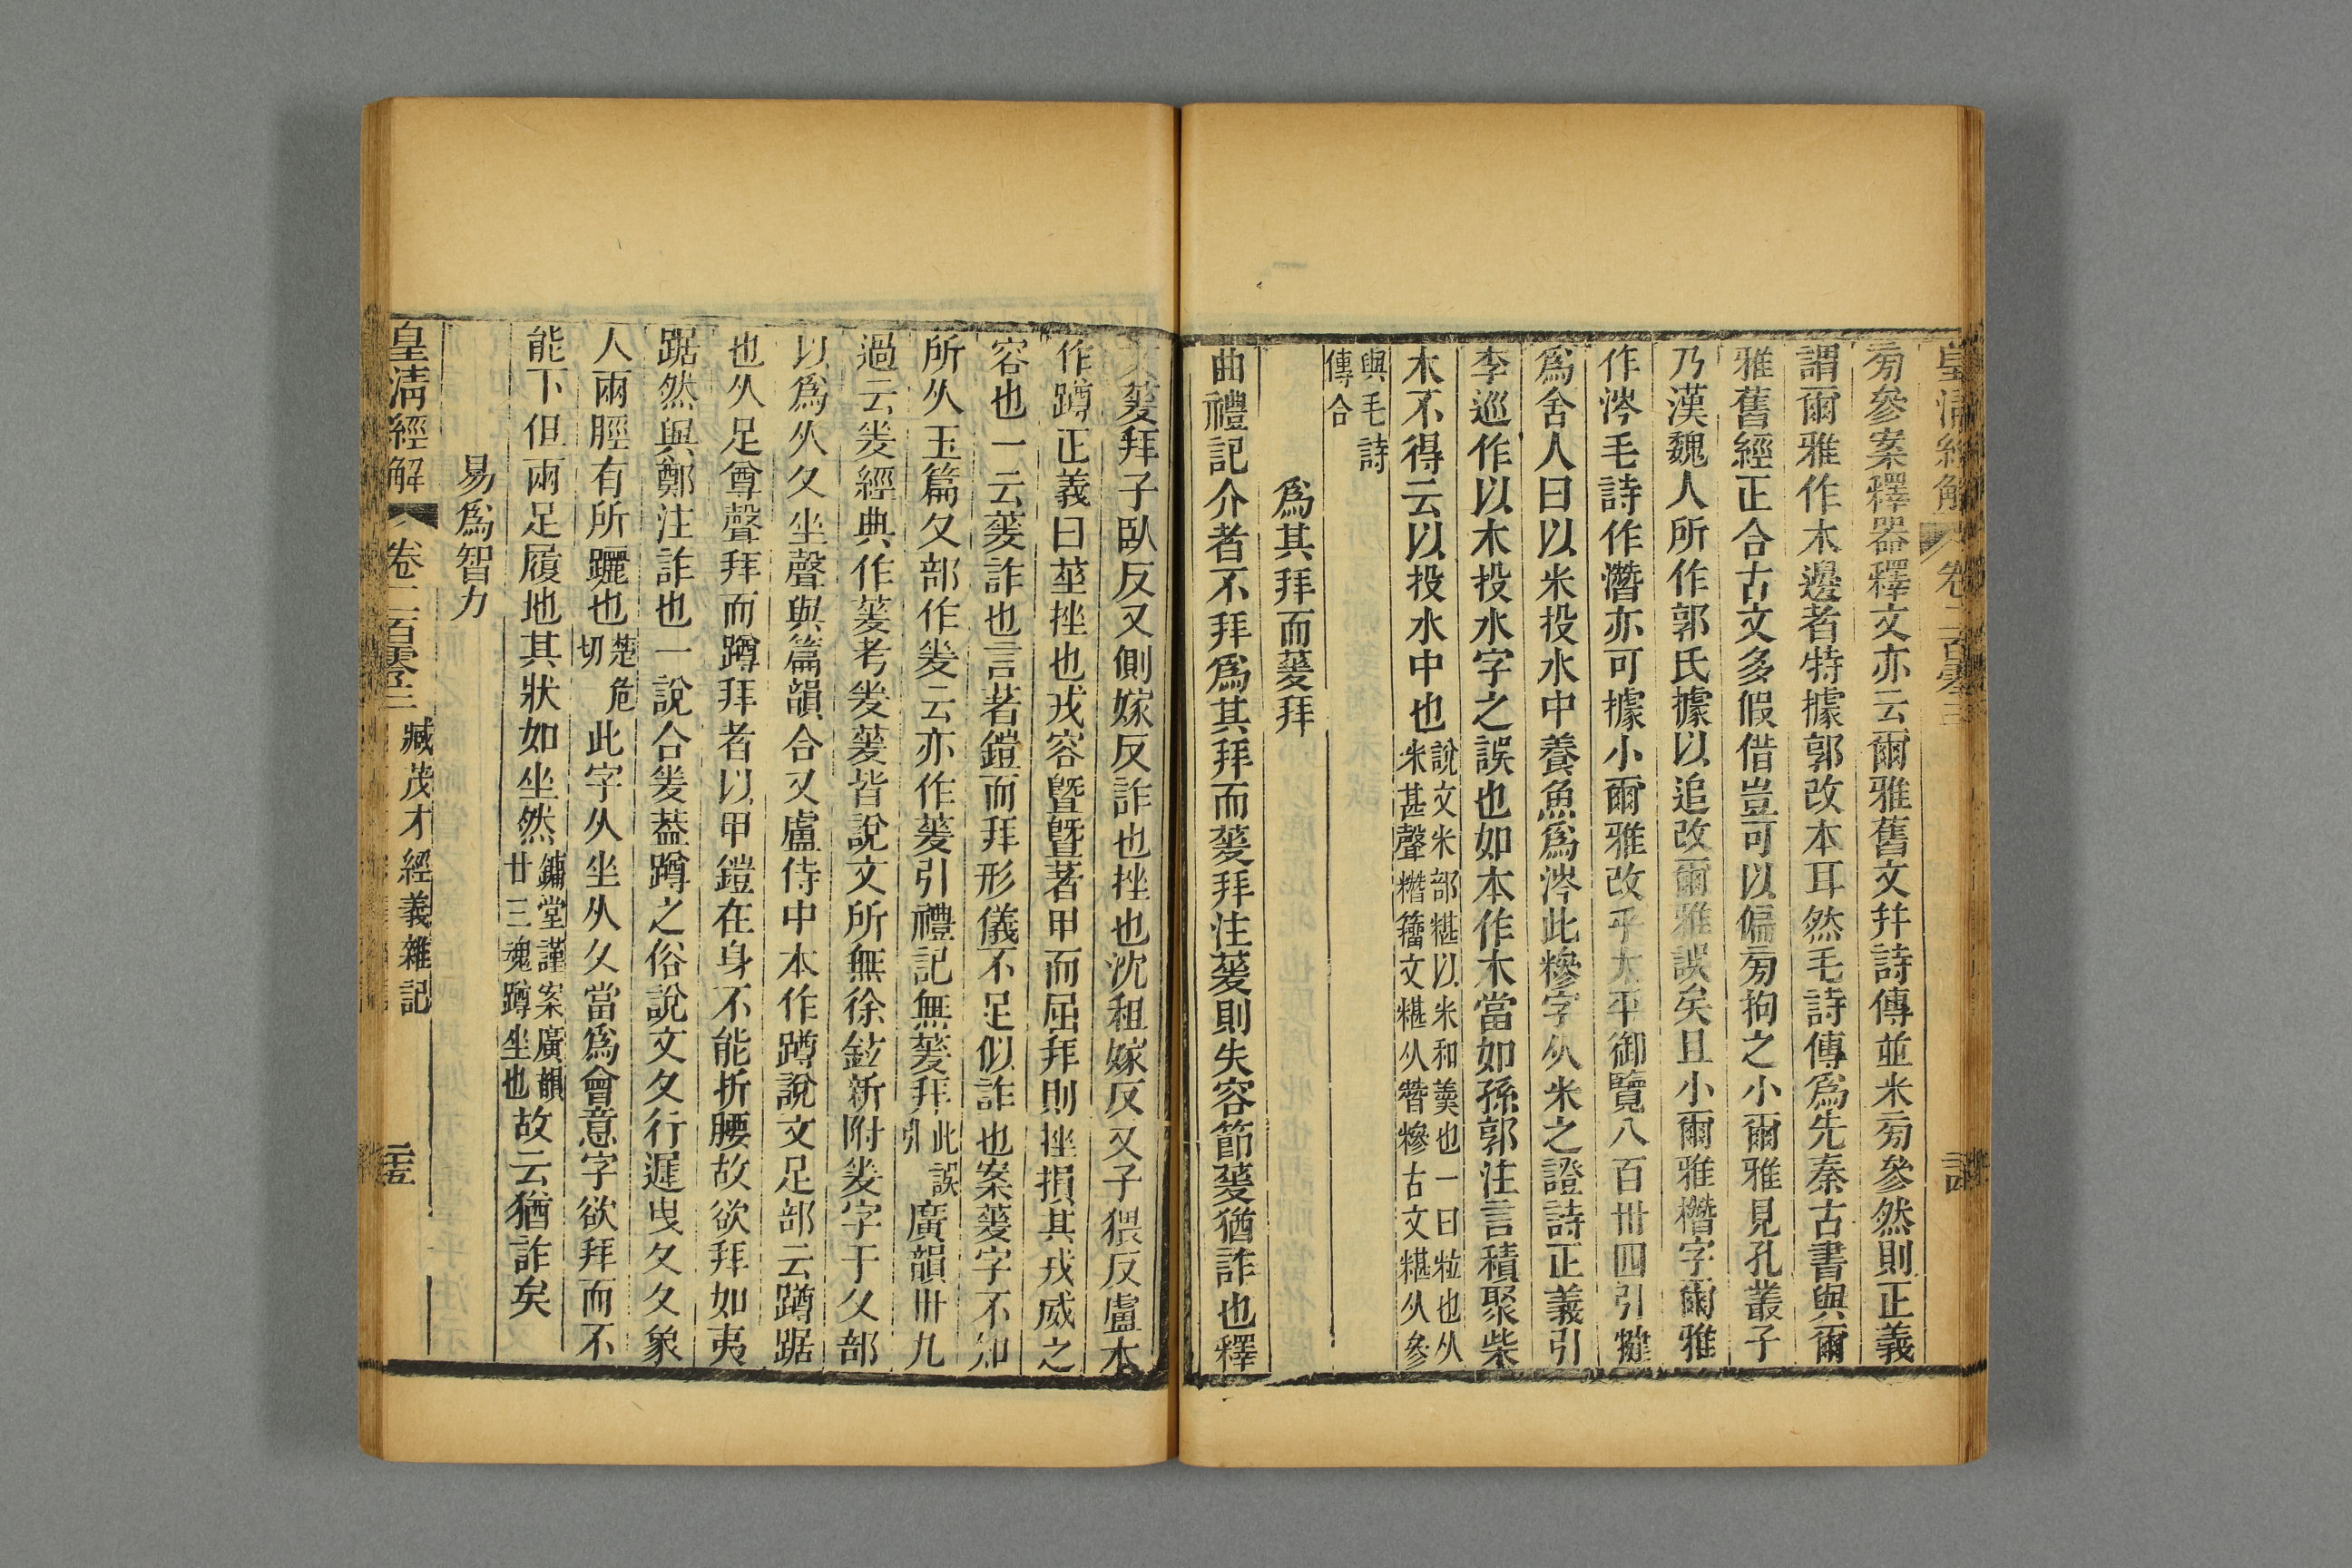 皇清經解 卷二百零三
旁參案釋器釋文亦云爾雅舊文幷詩傳並米旁參然則正義
謂爾雅作木邊者特據郭改本耳然毛詩傳爲先秦古書與爾
雅舊經正合古文多假借豈可以偏旁拘之小爾雅見孔叢子
乃漢魏人所作郭氏據以追改爾雅誤矣且小爾雅橬字爾雅
作涔毛詩作潛亦可據小爾雅改乎太平御覽八百卅四引犍
爲舍人曰以米投水中養魚爲涔此糝字从米之證詩正義引
李巡作以木投水字之誤也如本作木當如孫郭注言積聚柴
木不得云以投水中也
說文米部糂以米和羹也一曰粒也从
米甚聲糣籒文糂从朁糝古文糂从參
與毛詩
傳合
爲其拜而蓌拜
曲禮記介者不拜爲其拜而蓌拜注蓌則失容節蓌猶詐也釋
文蓌拜子臥反又側嫁反詐也挫也沈租嫁反又子猥反盧本
作蹲正義曰莝挫也戎容曁曁著甲而屈拜則挫損其戎威之
容也一云蓌詐也言著鎧而拜形儀不足似詐也案蓌字不知
所从玉篇夂部作夎云亦作蓌引禮記無蓌拜
此誤
引
廣韻卅九
過云夎經典作蓌考夎蓌皆說文所無徐鉉新附夎字于夂部
以爲从夂坐聲與篇韻合又盧侍中本作蹲說文足部云蹲踞
也从足尊聲拜而蹲拜者以甲鎧在身不能折腰故欲拜如夷
踞然與鄭注詐也一說合夎葢蹲之俗說文夂行遲曳夂夂象
人兩脛有所躧也
楚危
切
此字从坐从夂當爲會意字欲拜而不
能下但兩足履地其狀如坐然
鏞堂謹案廣韻
廿三魂蹲坐也
故云猶詐矣
易爲智力
皇清經解 卷二百零三 臧茂才經義雜記 三五